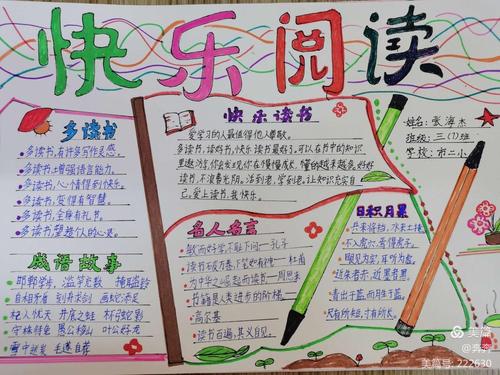 快乐阅读
多读书
多读书,有许多写作灵感。
多读书,增强语言能力。
多读书,心情得到快乐。
多读书,变得有智慧。
多读书,全身有礼节。
多读书,
成语故事
邯郸学步 滥竽充数 掩耳盗铃
自相矛盾 刻舟求剑 画蛇添足
杞人忧天 井底之蛙 杯弓蛇影
守株待兔 愚公移山 叶公好龙
毛遂自荐
快乐读书
爱学习的人最值得他人尊敬。
多读书,读好书,快乐读书最好了。可以在书中的知识
里遨游
读书,不浪费光阴。活到老,学到老。让知识充实自
己。爱上读书,我快乐。
名人名言
敏而好学,不耻下问—孔子
读书破万卷,下笔如有神—杜甫
为中华之崛起而读书—周恩来
书籍是人类进步的阶梯。—
高尔基
读书百遍,其义自见。
姓名:张海杰
班级:三(7)班
学校:市二小
日积月累
兵来将挡,水来土掩。
不入虎穴,焉得虎子。
眼见为实,耳听为虚。
近朱者赤,近墨者黑。
青出于蓝而胜于蓝。
尺有所短,寸有所长。
美篇
@奔奔
美篇号: 222630